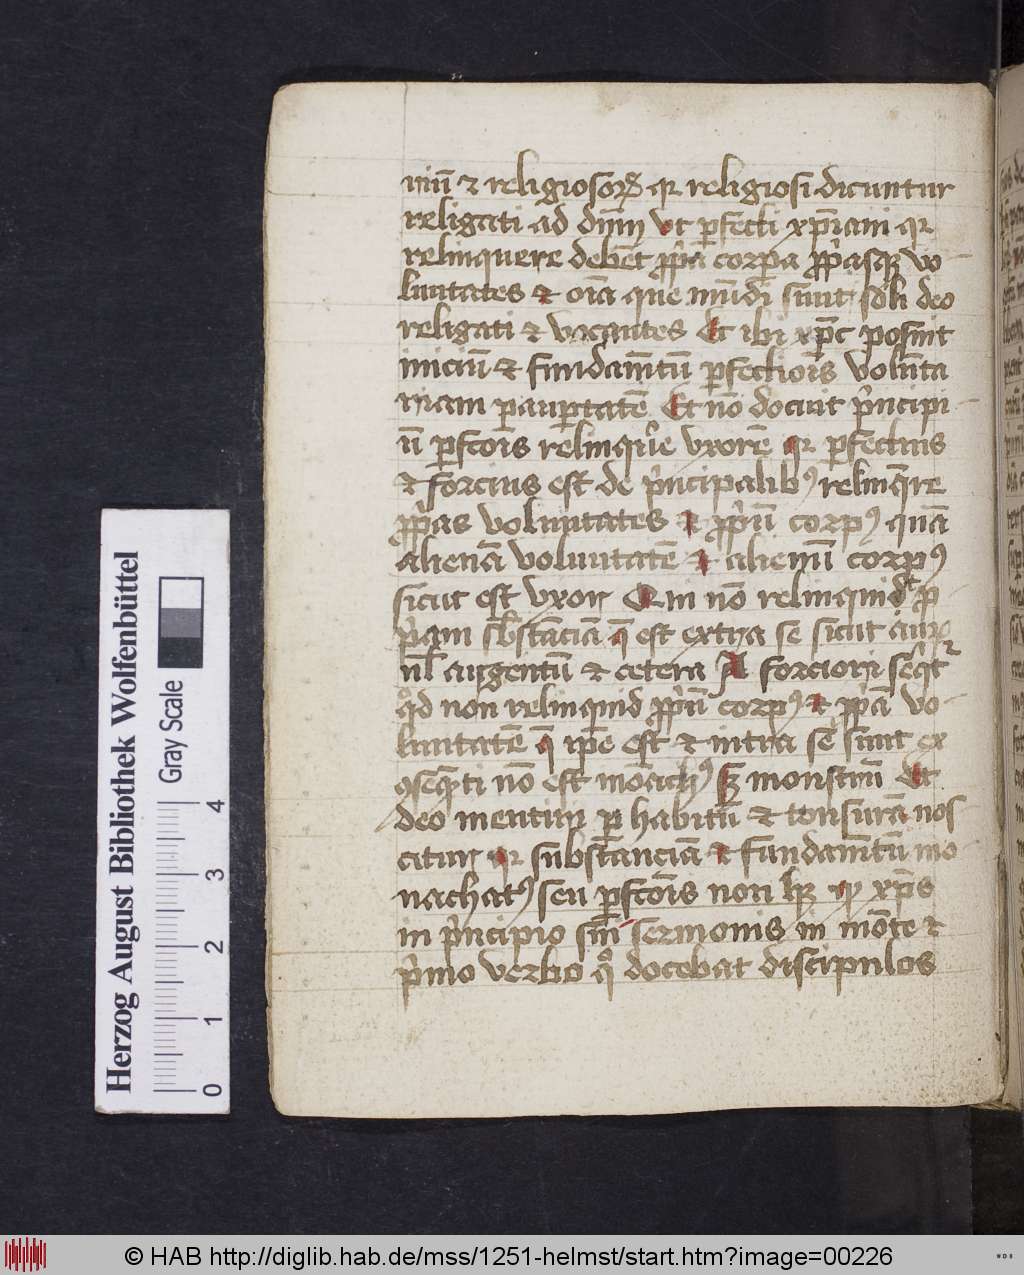 niū et religiosoꝝ qꝛ religiosi dicuntur
religati ad dm̄ vt ꝑfecti xp̄iani qꝛ
relinquere debēt ꝓp̄a corꝑa ꝓp̄asqꝫ vo-
luntates et oīa que mūdi sunt soli deo
religati et vacantes Et ibi xp̄c posuit
iniciū et fundamētū ꝑfectiōis volūta
riam pauꝑtatē Et nō docuit pͥncipi-
ū ꝑfcōis relinquͥe vxorē qꝛ ꝑfectius
et forcius est de pͥncipalibꝰ relinqͣre
ꝓpͥas voluntates et ꝓpͥū corpꝰ quā
alienā voluntatē et alienū corpꝰ
sicut est vxor Qui nō relinquid ꝓ
pͥam sb̄stāciā q̄ est extra se sicut aurū
vl̓ argentū et cetera A forciori seqͥtr
qͦd non relinquid ꝓpͥū corpꝰ et ꝓpͥā vo-
luntatē q̄ ip̄e est et intra se sunt ex
ꝯseqn̄ti nō est monachꝰ sꝫ monstrū Et
deo mentiri ꝑ habitū et tonsurā nos
citur qꝛ substanciā et fundamētū mo-
nachatꝰ seu ꝑfcōis non hꝫ qꝫ xp̄s
in pͥncipio sui sermonis in mōte et
pͥmo verbo qͦ docebat discipulos
Herzog August Bibliothek Wolfenbüttel
Gray Scale
0 1 2 3 4
© HAB http://diglib.hab.de/mss/1251-helmst/start.htm?image=00226